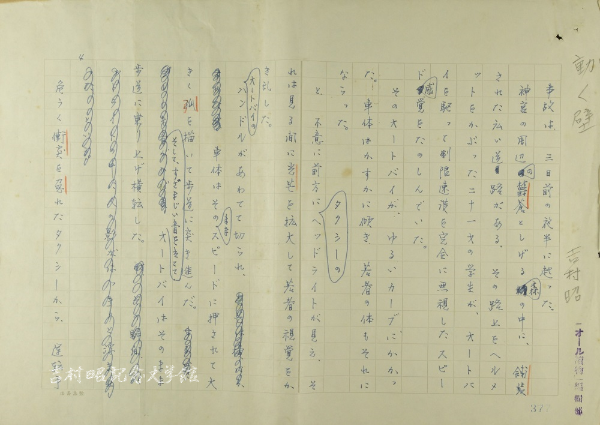 動く壁
吉村昭
オール讀物編輯部
事故は、三日前の夜半に起った。
神宮の周辺の鬱蒼としげる森の中に、鋪装
された広い道路がある。その路上をヘルメ
ットをかぶった二十一才の学生が、オートバ
イを駆って制限速度を完全に無視したスピー
ド感覚をたのしんでいた。
そのオートバイが、ゆるいカーブにかかっ
た。車体はかすかに傾き、若者の体もそれに
ならった。
と、不意に前方にタクシーのヘッドライトが見え、そ
れは見る間に光芒を拡大して若者の視覚をか
き乱した。
オートバイのハンドルがあわてて切られ、
車体はそのスピードに押されて大
きく弧を描いて歩道に突き進んだ。
そして、すさまじい音を立てて
オートバイはその
歩道に乗り上げ横転した。
危うく衝突を免れたタクシーから、運転手
吉村昭記念文学館